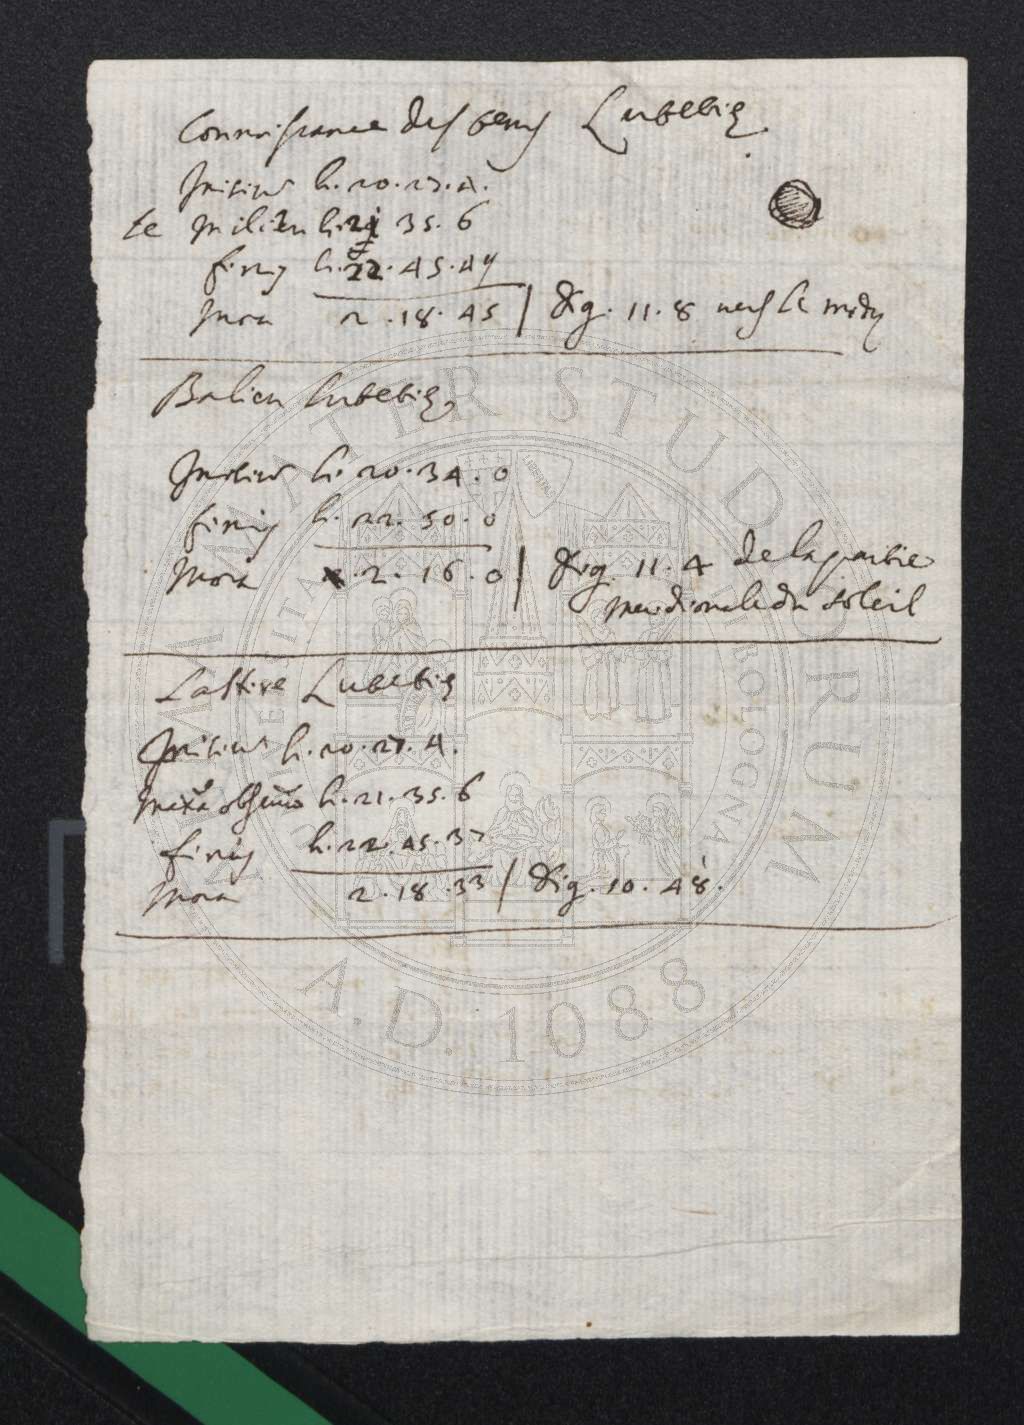 Connoissance des temps Lutetiæ
Initium h. 20. 27. 4.
Le milieu h. 21 35. 6
finis h. 22. 45. 49
Mora 2. 18. 45 | Dig. 11. 8 vers le midy
Balieu Lutetiæ,
Initium h. 20. 34. 0
finis h. 22. 50. 0
Mora 2. 16. 0 | Dig. 11. 4 de la partie
meridionale du soleil
La Hire Lutetiæ
Initium h. 20. 27. 4.
h. 21. 35. 6
finis h. 22. 45. 37
Mora 2. 18. 33 | Dig. 10. 48.
ALMA MATER STUDIORUM
A.D. 1088